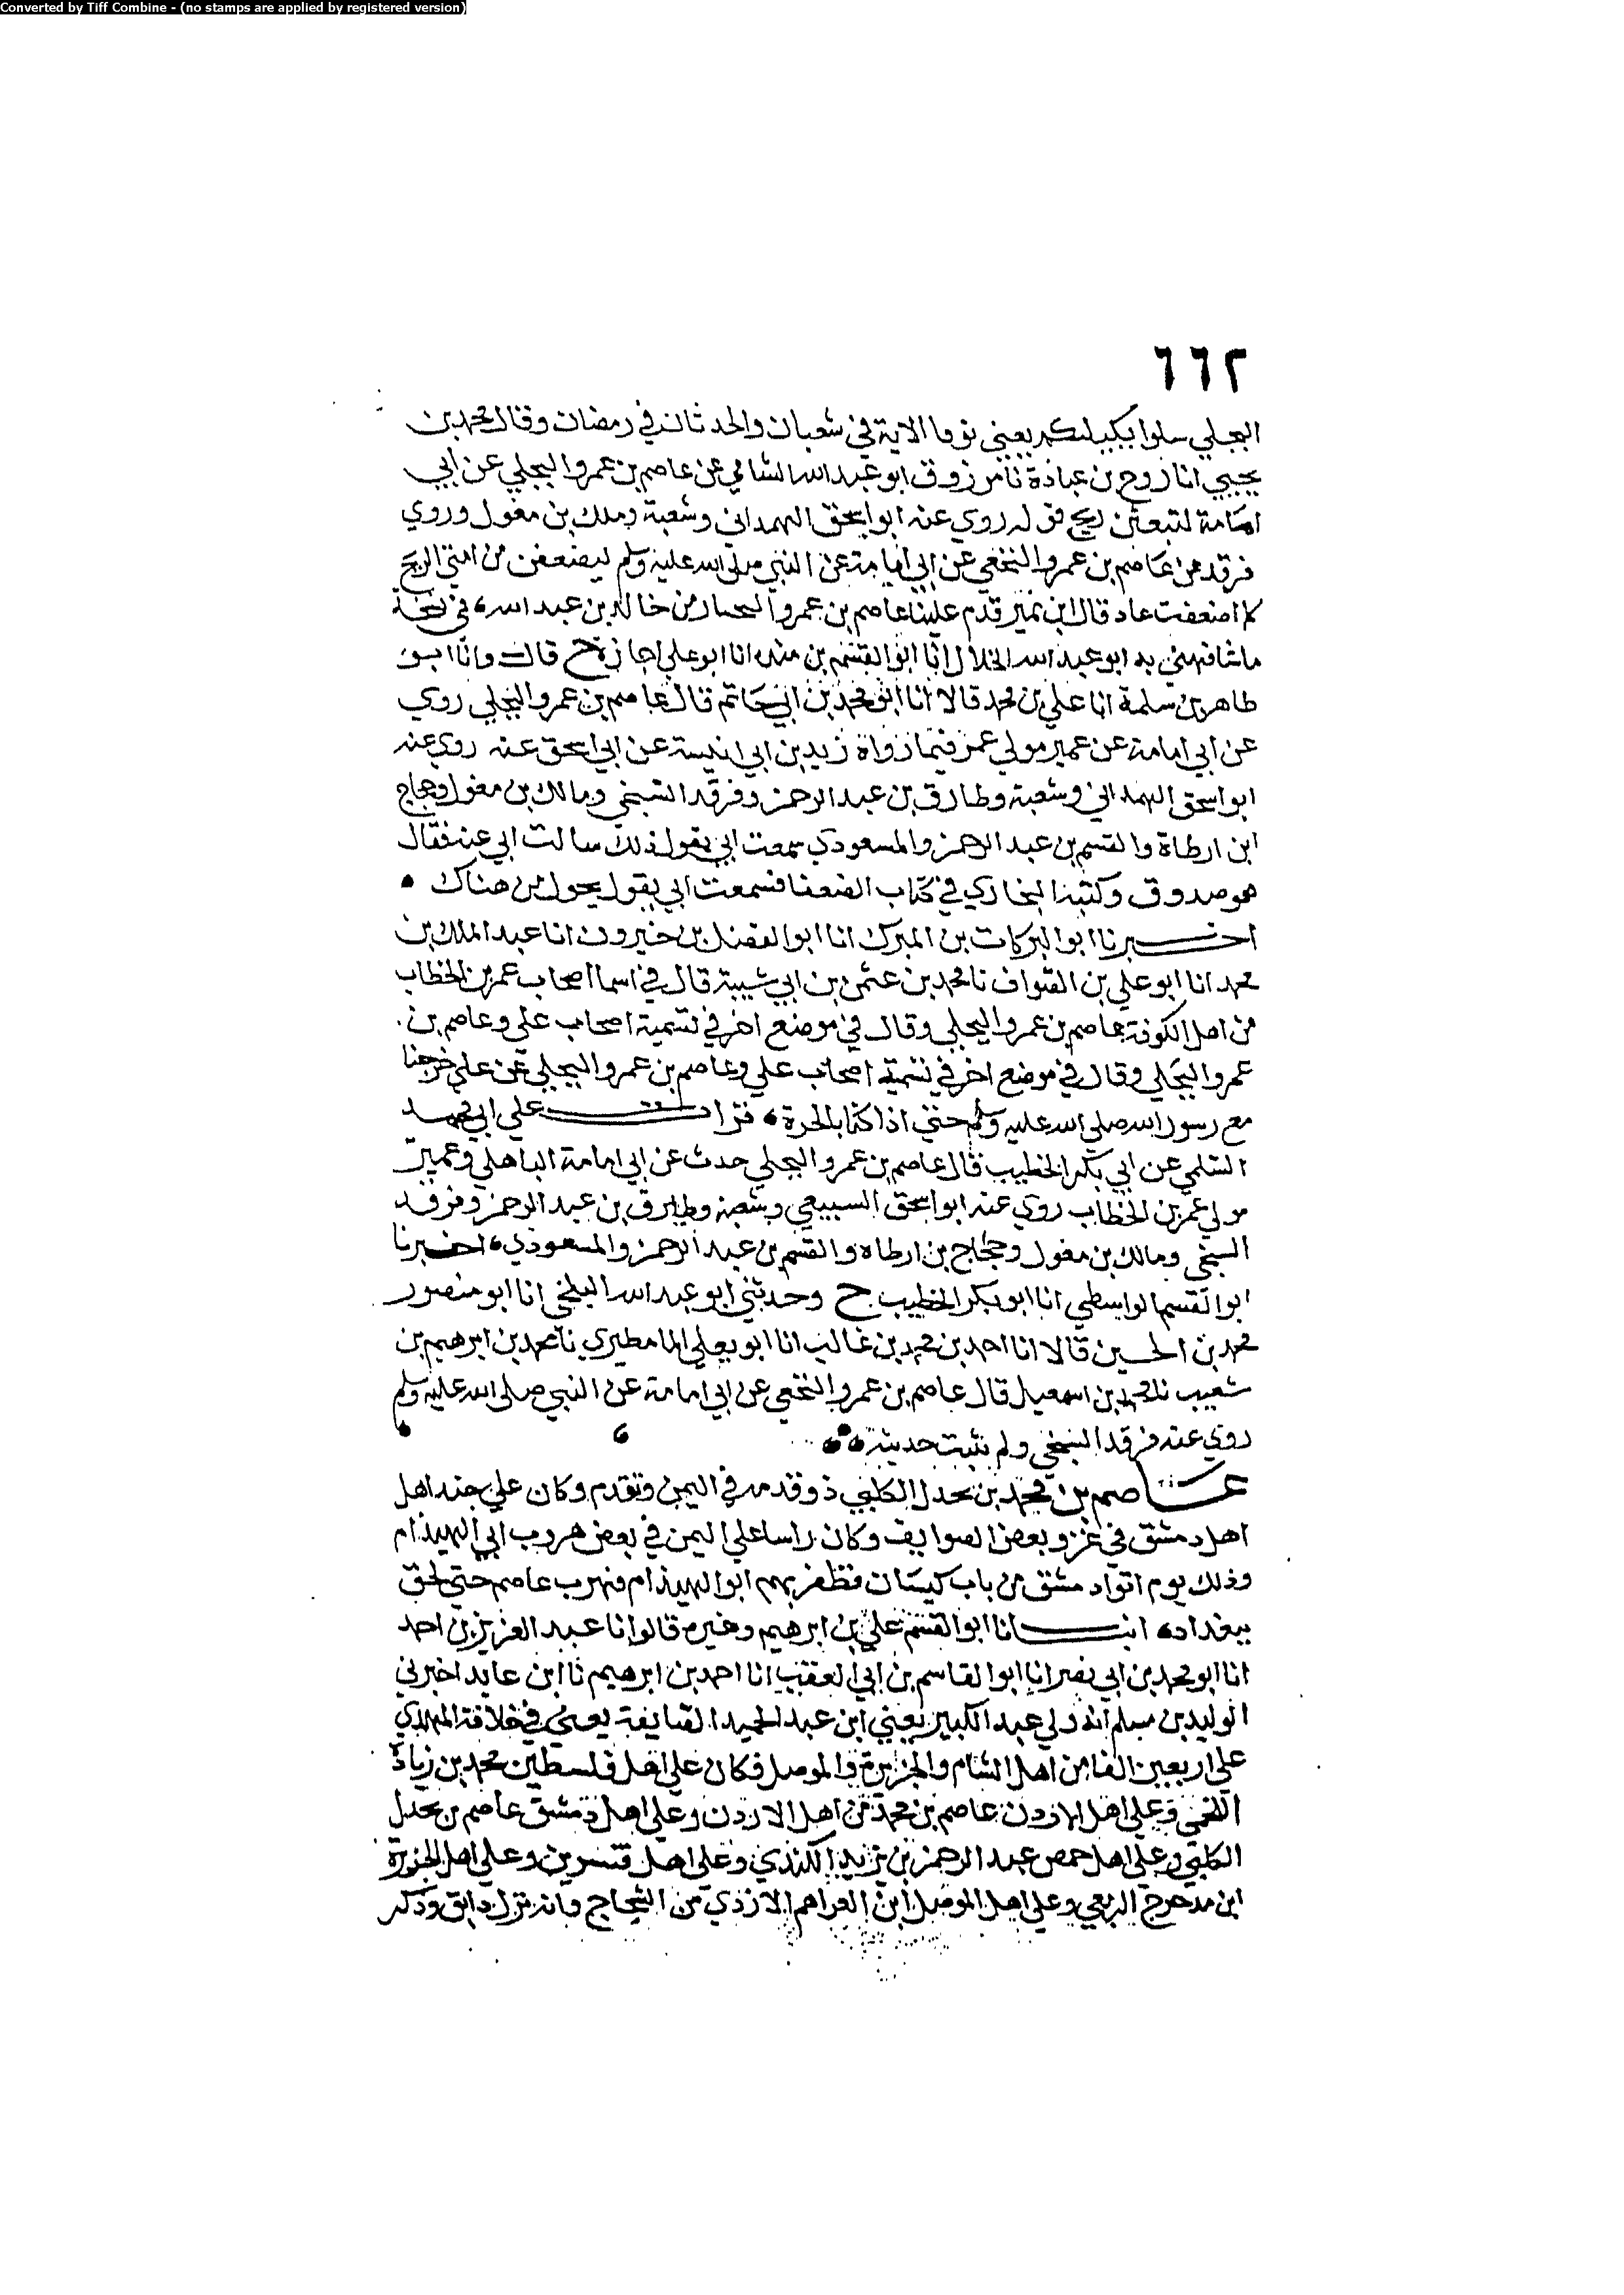 Converted by Tiff Combine - (no stamps are applied by registered version)
٦٦٢
البجلي سلوا بكيلكم يعني نوما الاية في شعبان والحدثان في رمضان وقال محمد بن
يحيي انا روح بن عبادة نا مرزوق ابو عبد الله الشامي عن عاصم بن عمرو البجلي عن ابي
امامة لتبعثن ريح قوله روي عنه ابو اسحق الهمداني وشعبة وملك بن مغول وروي
فرقد عن عاصم بن عمرو النخعي عن ابي امامة عن النبي صلى الله عليه وسلم ليضعفن من امتي الريح
كما اضعفت عاد قال ابن نمير قدم علينا عاصم بن عمرو من خالد بن عبد الله، في نسخة
ما شافهني به ابو عبد الله الخلال انا ابو القسم بن منده انا ابو علي اجازة ح قال وانا ابو
طاهر بن سلمة انا علي بن محمد قالا انا ابو محمد بن ابي حاتم قال عاصم بن عمرو البجلي روي
عن ابي امامة عن عمير مولي عمر فيما رواه زيد بن ابي انيسة عن ابي اسحق عنه روي عنه
ابو اسحق الهمداني وشعبة وطارق بن عبد الرحمن وفرقد السبخي ومالك بن مغول وحجاج
ابن ارطاة والقسم بن عبد الرحمن والمسعودي سمعت ابي يقول ذلك سالت ابي عنه فقال
هو صدوق وكتبه البخاري في كتاب الضعفا فسمعت ابي يقول يحول من هناك
اخبرنا ابو البركات بن المبرك انا ابو الفضل بن خيرون انا عبد الملك بن
محمد انا ابو علي بن الصواف نا محمد بن عثمن بن ابي شيبة قال في اسما اصحاب عمر بن الخطاب
من اهل الكوفة عاصم بن عمرو البجلي وقال في موضع اخر في تسمية اصحاب علي وعاصم بن
عمرو البجلي وقال في موضع اخر في تسمية اصحاب علي وعاصم بن عمرو البجلي عن علي خرجنا
مع رسول الله صلى الله عليه وسلم حتي اذا كنا بالحرة، قرات علي ابي محمد
السلمي عن ابي بكر الخطيب قال عاصم بن عمرو البجلي حدث عن ابي امامة الباهلي وعمير
مولي عمر بن الخطاب روي عنه ابو اسحق السبيعي وشعبة وطارق بن عبد الرحمن وفرقد
السبخي ومالك بن مغول وحجاج بن ارطاه والقسم بن عبد الرحمن والمسعودي، اخبرنا
ابو القسم الواسطي انا ابو بكر الخطيب ح وحدثني ابو عبد الله البلخي انا ابو منصور
محمد بن الحسين قالا انا احمد بن محمد بن غالب انا ابو يعلي المامطيري نا محمد بن ابرهيم بن
شعيب نا محمد بن اسمعيل قال عاصم بن عمرو النخعي عن ابي امامة عن النبي صلى الله عليه وسلم
روي عنه فرقد السبخي ولم يثبت حديثه
عاصم بن محمد بن بحدل الكلبي ذو قدمه في اليمن وتقدم وكان علي جند اهل
اهل دمشق في غزو بعض الصوايف وكان راسا علي اليمن في بعض حروب ابي الهيذام
وذلك يوم اتوا دمشق من باب كيسان فظفر بهم ابو الهيذام فهرب عاصم حتي لحق
ببغداد، انبانا ابو القسم علي بن ابرهيم وغيره قالوا انا عبد العزيز بن احمد
انا ابو محمد بن ابي نصر انا ابو القاسم بن ابي العقب انا احمد بن ابرهيم نا ابن عايد اخبرني
الوليد بن مسلم انه ولي عبد الكبير يعني ابن عبد الحميد الصايفة يعني في خلافة المهدي
علي اربعين الفا من اهل الشام والجزيرة والموصل فكان علي اهل فلسطين محمد بن زيادة
اللخمي وعلي اهل الاردن عاصم بن محمد من اهل الاردن وعلي اهل دمشق عاصم بن بحدل
الكلبي وعلي اهل حمص عبد الرحمن بن يزيد الكندي وعلي اهل قنسرين وعلي اهل الجزيرة
ابن الربعي وعلي اهل الموصل ابن الازدي من وانه نزل دابق وذكر